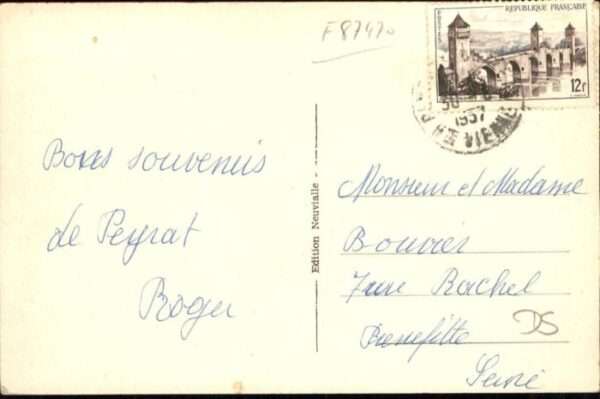 F87470
RÉPUBLIQUE FRANÇAISE
12F
1957
HTE VIENNE
Bons souvenirs
de Peyrat
Roger
Edition Neuvialle -
Monsieur et Madame
Bouvier
7 rue Rachel
Pierrefitte
Seine
DS